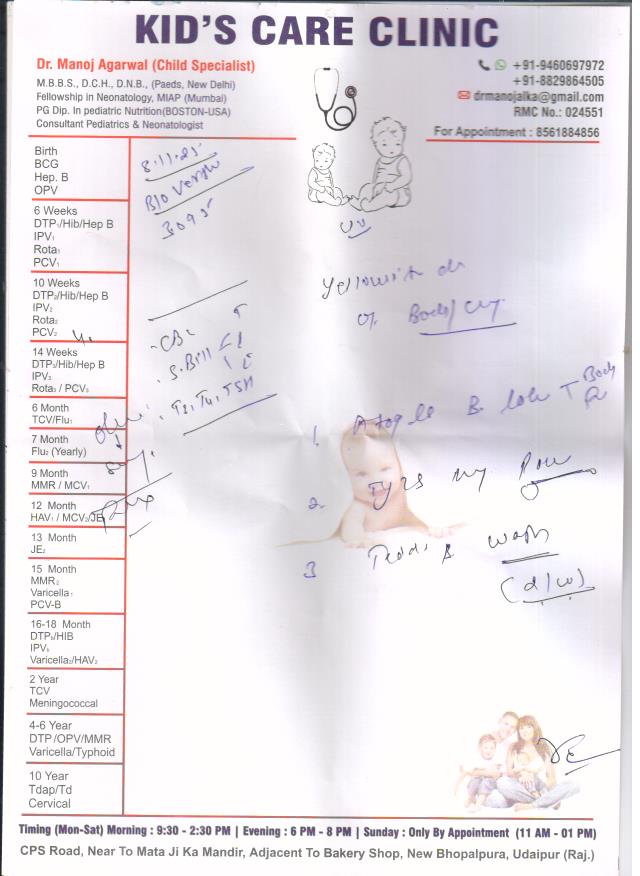 KID'S CARE CLINIC
Dr. Manoj Agarwal (Child Specialist)
M.B.B.S., D.C.H., D.N.B., (Paeds, New Delhi)
Fellowship in Neonatology, MIAP (Mumbai)
PG Dip. In pediatric Nutrition(BOSTON-USA)
Consultant Pediatrics & Neonatologist
+91-9460697972
+91-8829864505
drmanojalka@gmail.com
RMC No.: 024551
For Appointment : 8561884856
Birth
BCG
Hep. B
OPV
6 Weeks
DTP₁/Hib/Hep B
IPV₁
Rota₁
PCV₁
10 Weeks
DTP₂/Hib/Hep B
IPV₂
Rota₂
PCV₂
14 Weeks
DTP₃/Hib/Hep B
IPV₃
Rota₃ / PCV₃
6 Month
TCV/Flu₁
7 Month
Flu₂ (Yearly)
9 Month
MMR / MCV₁
12 Month
HAV₁ / MCV₂/JE₁
13 Month
JE₂
15 Month
MMR₂
Varicella₁
PCV-B
16-18 Month
DTP₅/HIB
IPV₅
Varicella₂/HAV₂
2 Year
TCV
Meningococcal
4-6 Year
DTP/OPV/MMR
Varicella/Typhoid
10 Year
Tdap/Td
Cervical
8.11.25
B/O
3095
Yellowish
Body/
CBC
S.Bill
T3, T4, TSH
1. B. T Body
2.
3 wash
(d/w)
Timing (Mon-Sat) Morning : 9:30 - 2:30 PM | Evening : 6 PM - 8 PM | Sunday : Only By Appointment (11 AM - 01 PM)
CPS Road, Near To Mata Ji Ka Mandir, Adjacent To Bakery Shop, New Bhopalpura, Udaipur (Raj.)